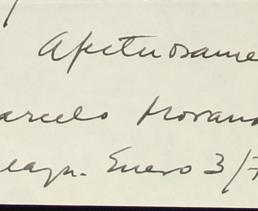 Afectuosame
arcelo Moran
eagn. Enero 3/7